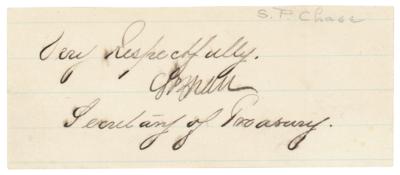 S. P. Chase
Very Respectfully.
Secretary of Treasury.